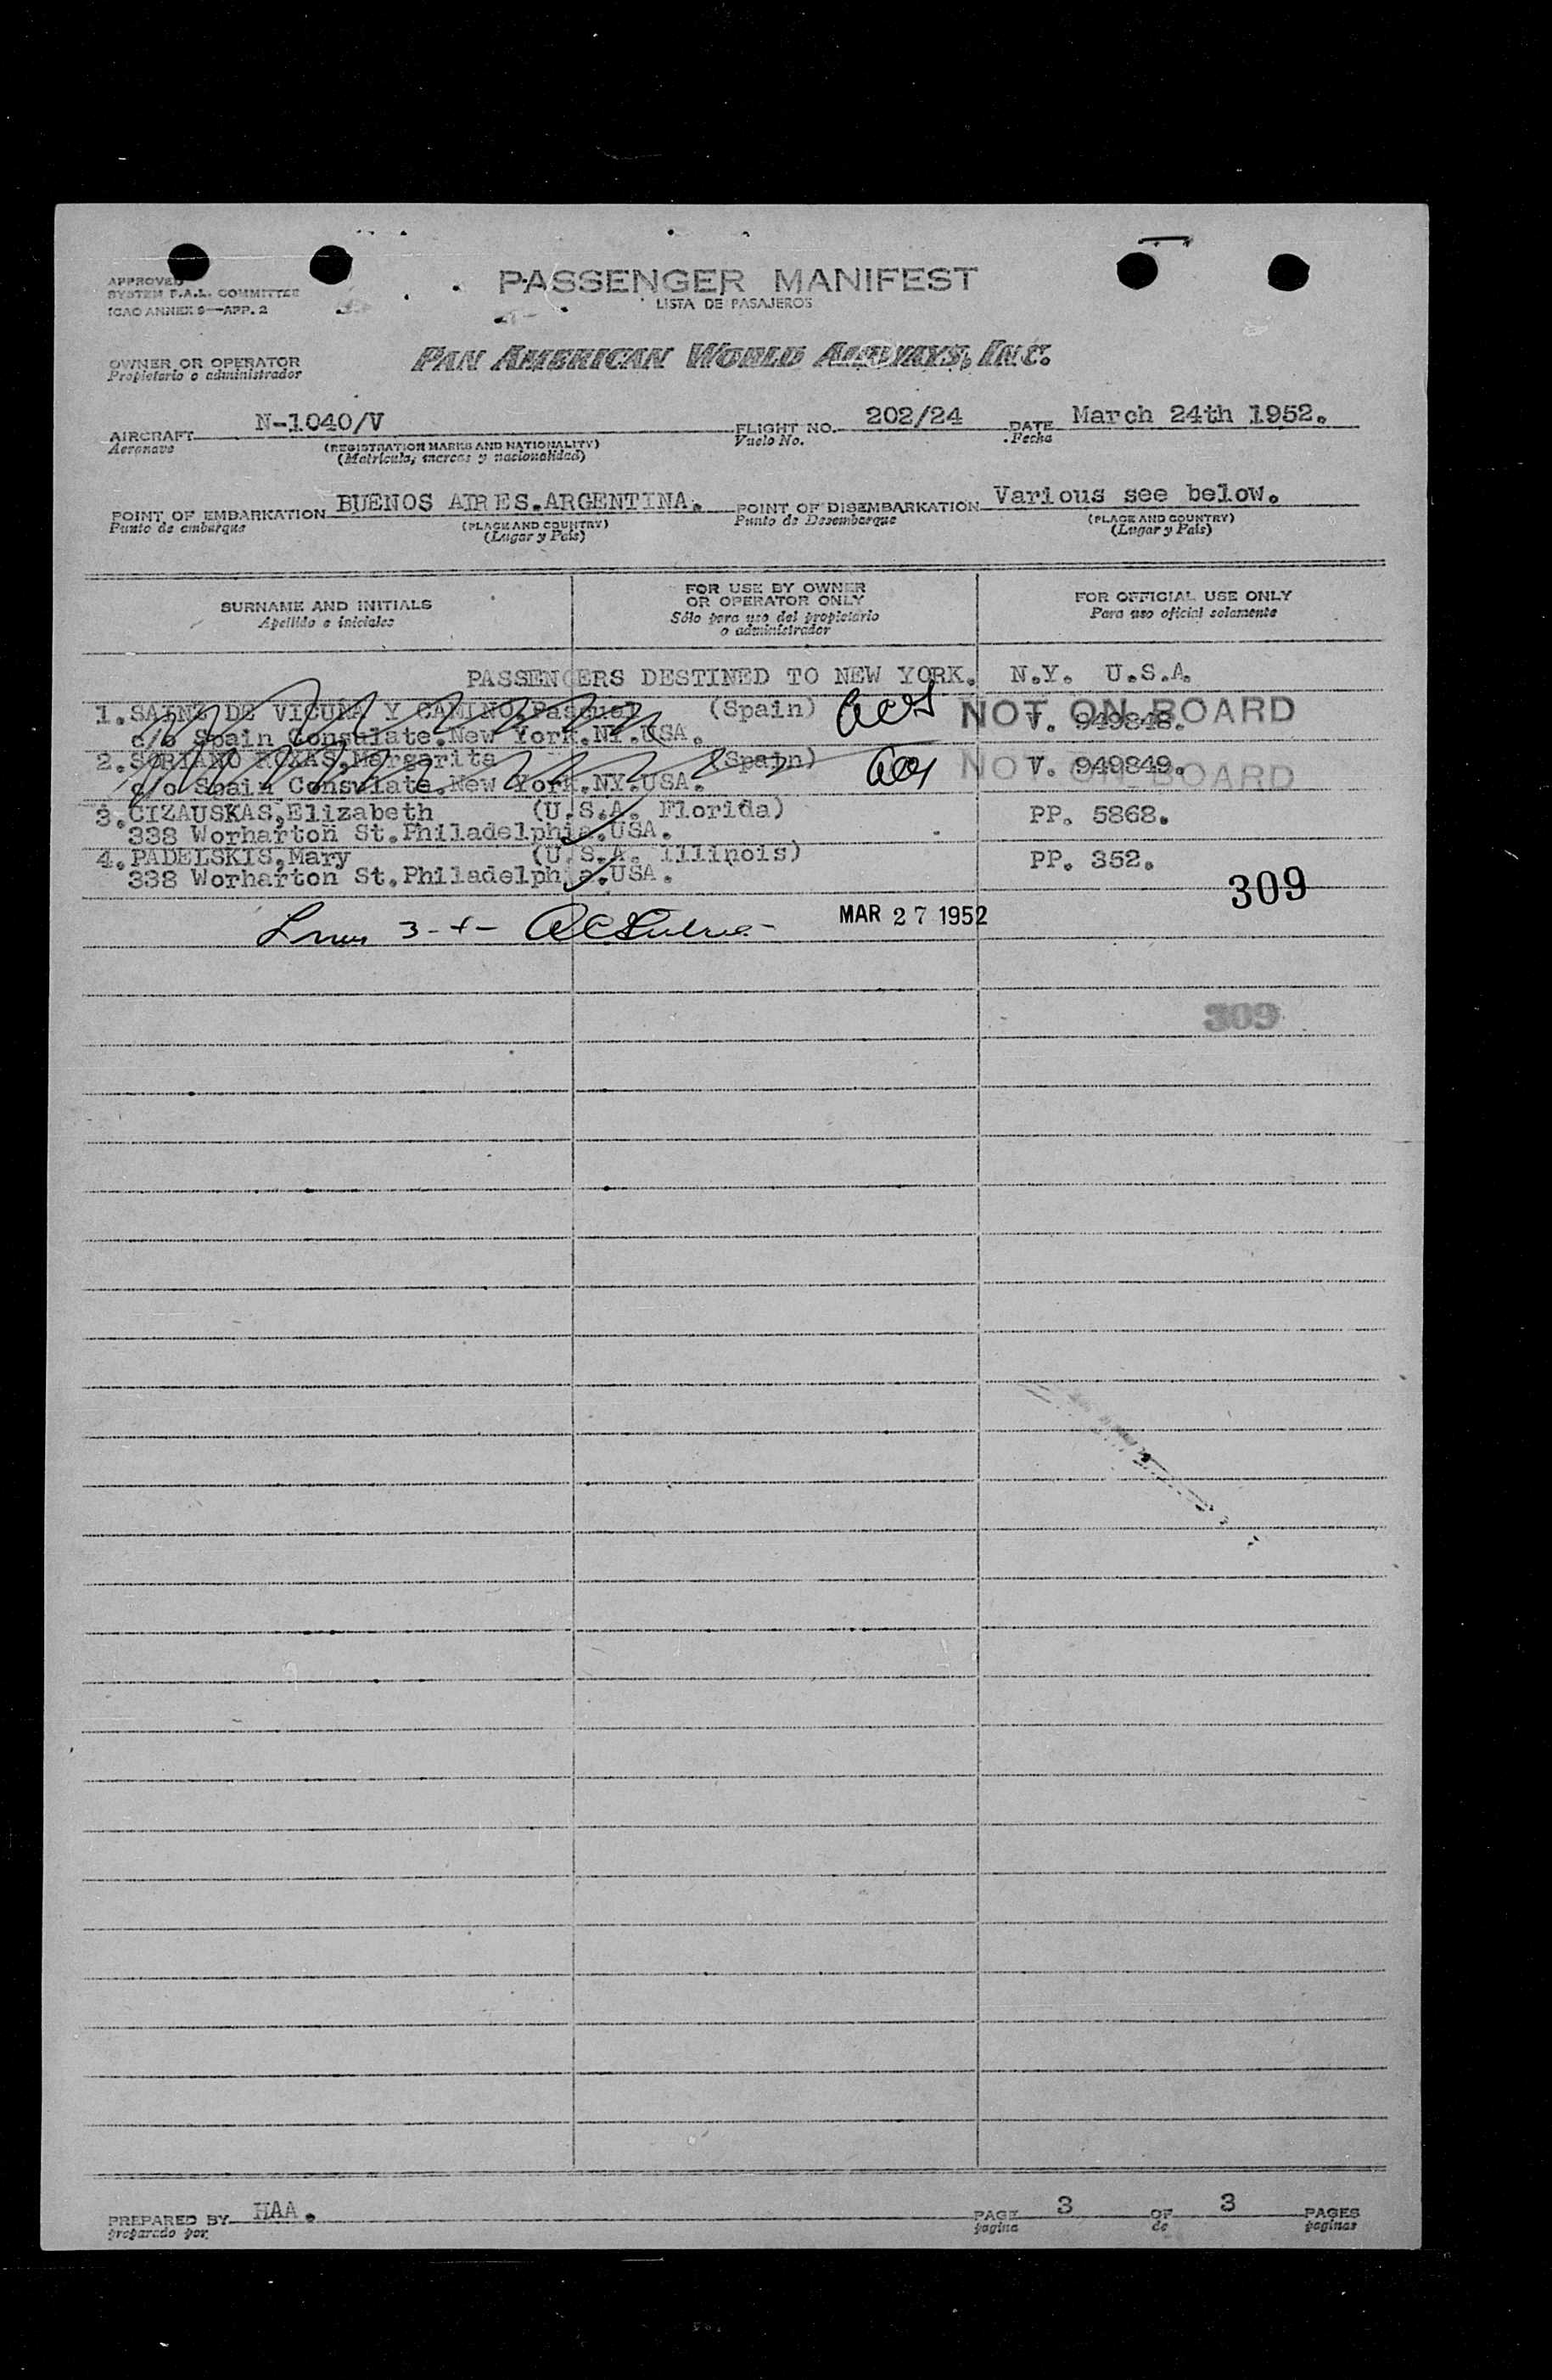 APPROVED
SYSTEM F.A.L. COMMITTEE
ICAO ANNEX 9—APP. 2
PASSENGER MANIFEST
LISTA DE PASAJEROS
OWNER OR OPERATOR
Propietario o administrador
PAN AMERICAN WORLD AIRWAYS, INC.
AIRCRAFT N-1040/V FLIGHT NO. 202/24 DATE March 24th 1952.
Aeronave (REGISTRATION MARKS AND NATIONALITY) Vuelo No. Fecha
(Matricula, marcas y nacionalidad)
POINT OF EMBARKATION BUENOS AIRES.ARGENTINA. POINT OF DISEMBARKATION Various see below.
Punto de embarque (PLACE AND COUNTRY) Punto de Desembarque (PLACE AND COUNTRY)
(Lugar y País) (Lugar y País)
SURNAME AND INITIALS FOR USE BY OWNER OR OPERATOR ONLY FOR OFFICIAL USE ONLY
Apellido e iniciales Sólo para uso del propietario o administrador Para uso oficial solamente
PASSENGERS DESTINED TO NEW YORK. N.Y. U.S.A.
1. DE VICUNA Y CAMINO, (Spain) NOT ON BOARD V. 949848.
c/o Spain Consulate.New York.NY.USA.
2.SORIANO ROXAS,Margarita (Spain) NOT ON BOARD V. 949849.
c/o Spain Consulate.New York.NY.USA.
3.CIZAUSKAS,Elizabeth (U.S.A. Florida) PP. 5868.
338 Worharton St.Philadelphia.USA.
4.PADELSKIS,Mary (U.S.A. Illinois) PP. 352.
338 Worharton St.Philadelphia.USA.
309
MAR 27 1952
309
PREPARED BY HAA. PAGE 3 OF 3 PAGES
preparado por página de páginas